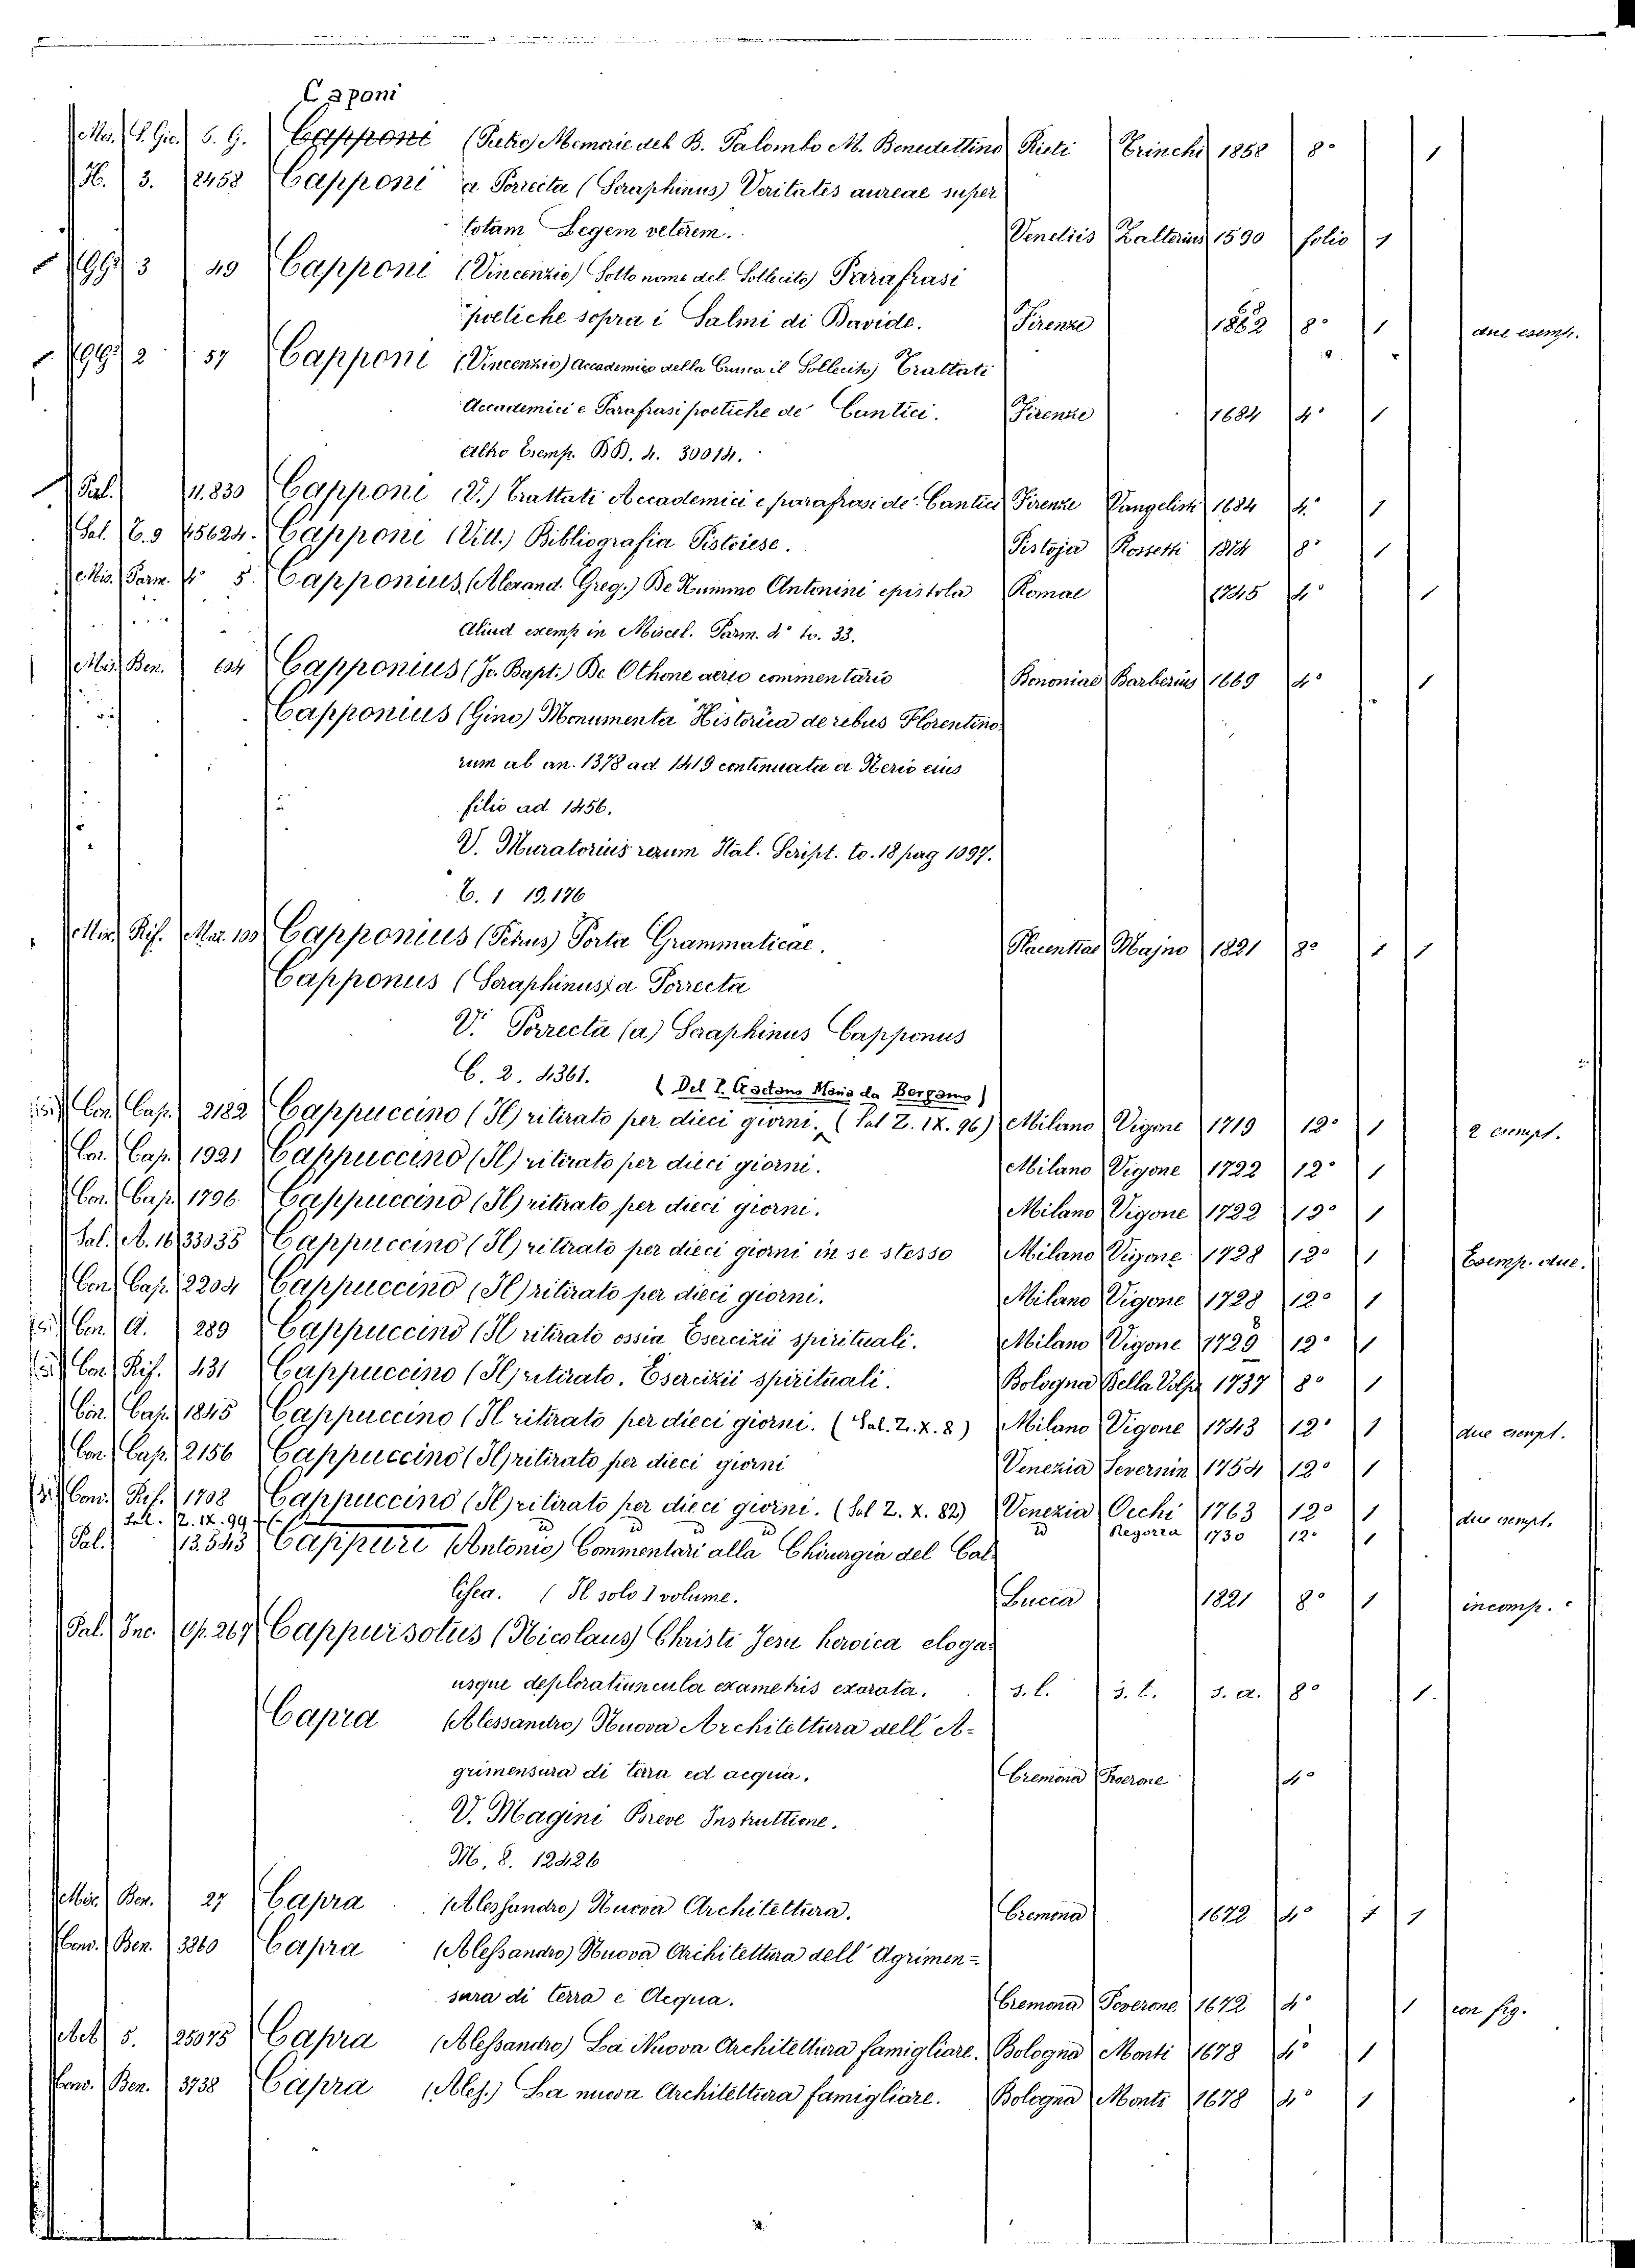 Caponi
Mis. S. Gio. S. G. Capponi (Pietro) Memorie del B. Palombo M. Benedettino Rieti Trinchi 1858 8° 1
H. 3. 2458 Capponi a Porrecta (Seraphinus) Veritates aureae super
totam Legem veterem. Venetiis Zalterius 1590 folio 1
199 3 49 Capponi (Vincenzio) sotto nome del Sollecito) Parafrasi
poetiche sopra i Salmi di Davide. Firenze 8° 1 due esemp.
199 2 57 Capponi (Vincenzio) accademico della Crusca il Sollecito) Trattati
Accademici e Parafrasi poetiche de' Cantici. Firenze 1684 4° 1
Altro Esemp. BB. 4. 30014.
Pal. 11.830 Capponi (V.) Trattati Accademici e parafrasi de' Cantici Firenze Vangelisti 1684 4° 1
Sal. E.9 45624. Capponi (Vitt.) Bibliografia Pistoiese. Pistoja Rossetti 1874 8° 1
Mis. Parm. 4° 5. Capponius (Alexand. Greg.) De Nummo Antonini epistola Romae 1745 4° 1
Aliud exemp in Miscel. Parm. 4° to. 33.
Mis. Ben. 634 Capponius (Jo. Bapt.) De Othone aereo commentario Bononiae Barberius 1669 4° 1
Capponius (Gino) Monumenta Historica de rebus Florentino
rum ab an. 1378 ad 1419 continuata a Nerio eius
filio ad 1456.
V. Muratorius rerum Ital. Script. to. 18 pag 1097.
E. 1 19.176
Min. Rif. Mar. 100 Capponius (Petrus) Porta Grammaticae. Placentiae Majno 1821 8° 1 1
Capponus (Seraphinus) a Porrecta
V. Porrecta (a) Seraphinus Capponus
C. 2. 4361.
(Del P. Gaetano Maria da Bergamo)
Con. Cap. 2182 Cappuccino (Il) ritirato per dieci giorni. (Sal Z. IX. 96) Milano Vigone 1719 12° 1 2 esempl.
Con. Cap. 1921 Cappuccino (Il) ritirato per dieci giorni. Milano Vigone 1722 12° 1
Con. Cap. 1796. Cappuccino (Il) ritirato per dieci giorni. Milano Vigone 1722 12° 1
Sal. A. 16 33035 Cappuccino (Il) ritirato per dieci giorni in se stesso Milano Vigone 1728 12° 1 Esemp. due.
Con. Cap. 2204 Cappuccino (Il) ritirato per dieci giorni. Milano Vigone 1728 12° 1
Con. A. 289 Cappuccino (Il ritirato ossia Esercizii spirituali. Milano Vigone 1729 12° 1
Con. Rif. 431 Cappuccino (Il) ritirato. Esercizii spirituali. Bologna Della Volpe 1737 8° 1
Con. Cap. 1845 Cappuccino (Il ritirato per dieci giorni. (Sal. Z. X. 8) Milano Vigone 1743 12° 1 due esempl.
Con. Cap. 2156 Cappuccino (Il) ritirato per dieci giorni Venezia Severnin 1754 12° 1
Conv. Rif. 1708 Cappuccino (Il) ritirato per dieci giorni. (Sal Z. X. 82) Venezia Occhi 1763 12° 1 due esempl.
Sal. Z. IX. 99 Regozza 1730 12° 1
Pal. 13.543 Cappuri (Antonio) Commentari alla Chirurgia del Cal
lisea. (Il solo 1 volume. Lucca 1821 8° 1 incomp.
Pal. Inc. Op. 267 Cappursotus (Nicolaus) Christi Jesu heroica eloga
usque deploratiuncula exametris exarata. s. l. s. t. s. a. 8° 1.
Capra (Alessandro) Nuova Architettura dell' A-
grimensura di terra ed acqua. Cremona 4°
V. Magini Breve Instruttione.
M. 8. 12426
Min. Ben. 27 Capra (Alessandro) Nuova Architettura. Cremona 1672 4° 1 1
Conv. Ben. 3860 Capra (Alessandro) Nuova Architettura dell' Agrimen=
sura di terra e Acqua. Cremona Poverone 1672 4° 1 con fig.
5. 25075 Capra (Alessandro) La Nuova Architettura famigliare. Bologna Monti 1678 4° 1
Conv. Ben. 3738 Capra (Ales.) La nuova Architettura famigliare. Bologna Monti 1678 4° 1